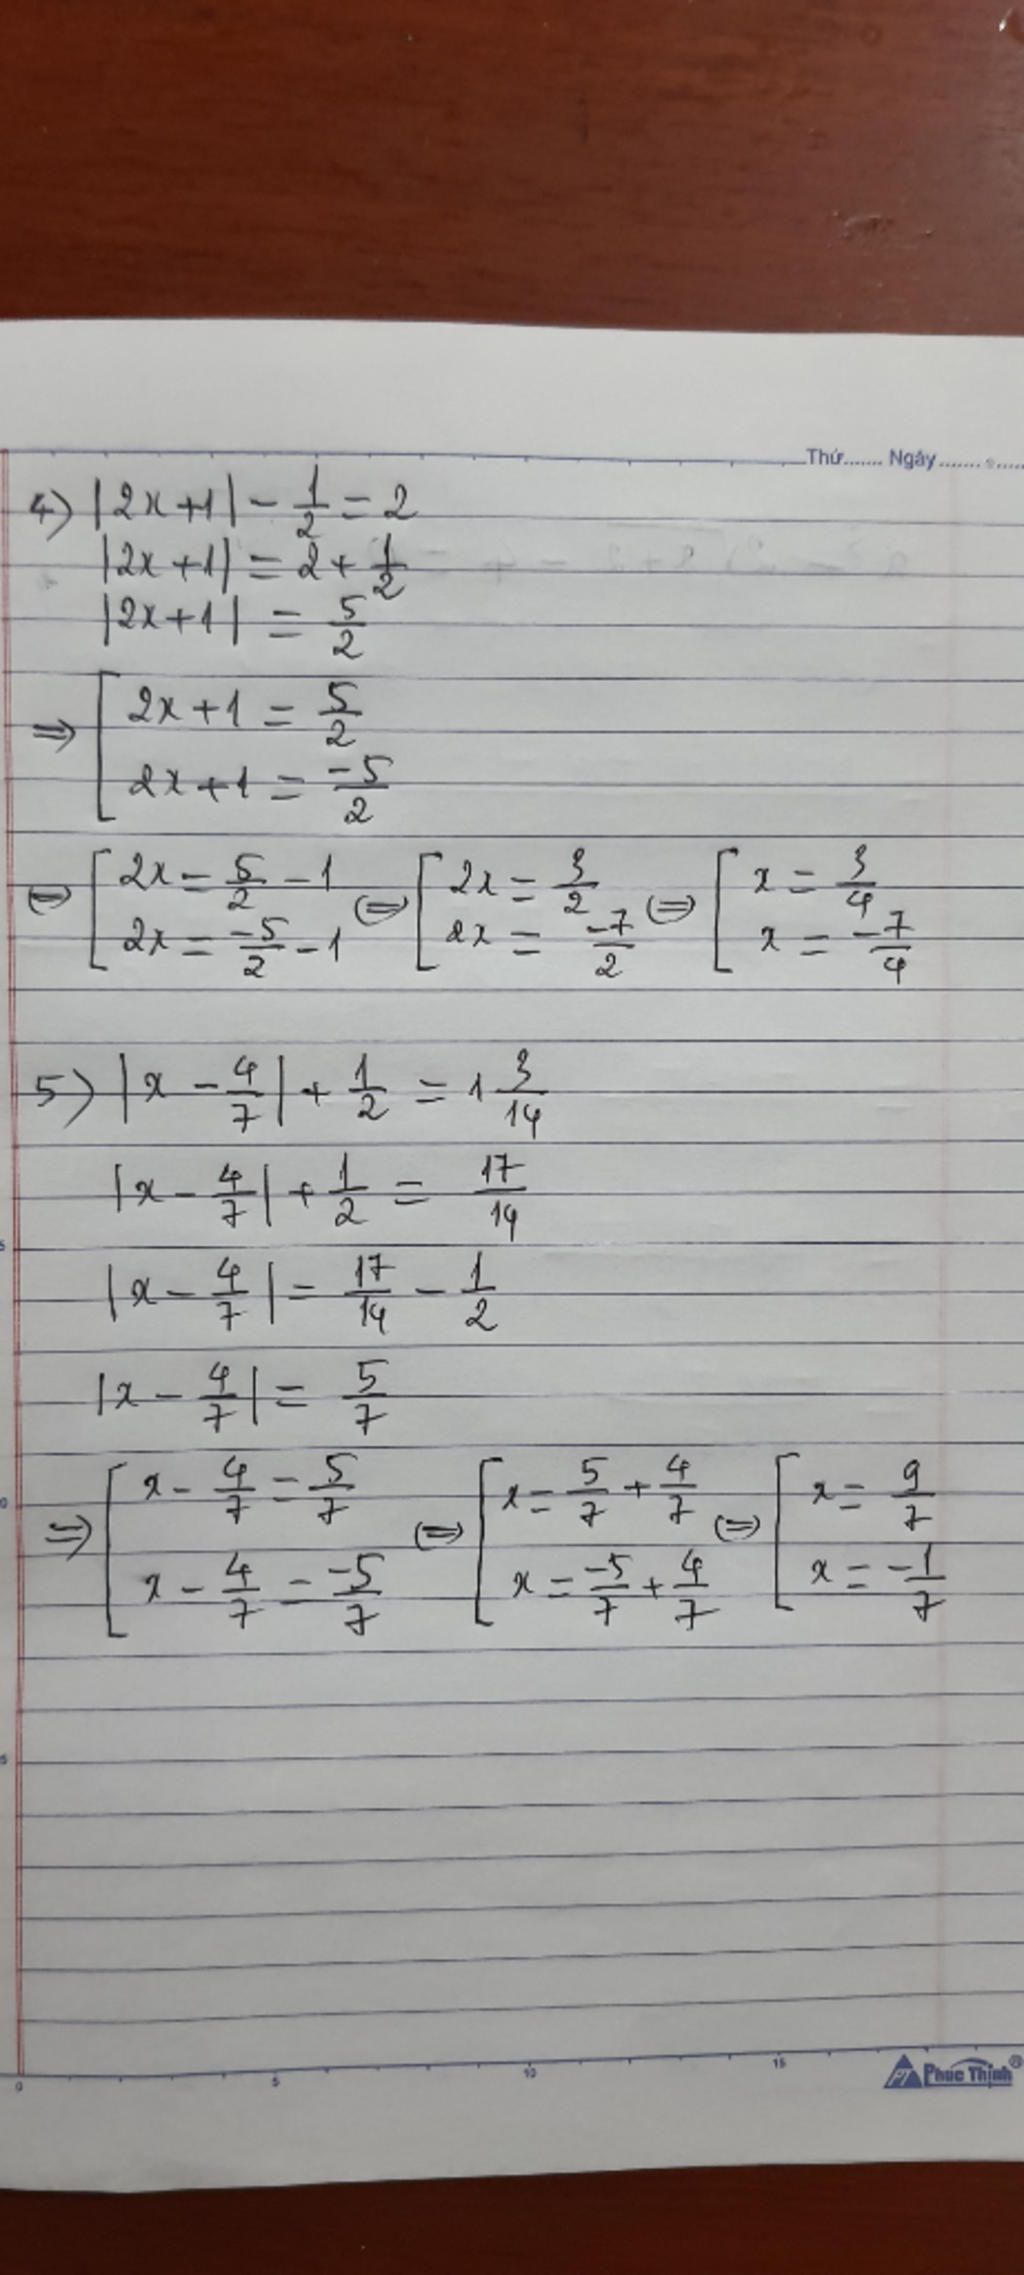 Thứ....... Ngày............
4) |2x+1| - 1/2 = 2
|2x+1| = 2 + 1/2
|2x+1| = 5/2
⇒ [ 2x+1 = 5/2
2x+1 = -5/2
⇔ [ 2x = 5/2 - 1 ⇔ [ 2x = 3/2 ⇔ [ x = 3/4
2x = -5/2 - 1 2x = -7/2 x = -7/4
5) |x - 4/7| + 1/2 = 1 3/14
|x - 4/7| + 1/2 = 17/14
|x - 4/7| = 17/14 - 1/2
|x - 4/7| = 5/7
⇒ [ x - 4/7 = 5/7 ⇔ [ x = 5/7 + 4/7 ⇔ [ x = 9/7
x - 4/7 = -5/7 x = -5/7 + 4/7 x = -1/7
0 5 10 15
PT Phuc Thinh®